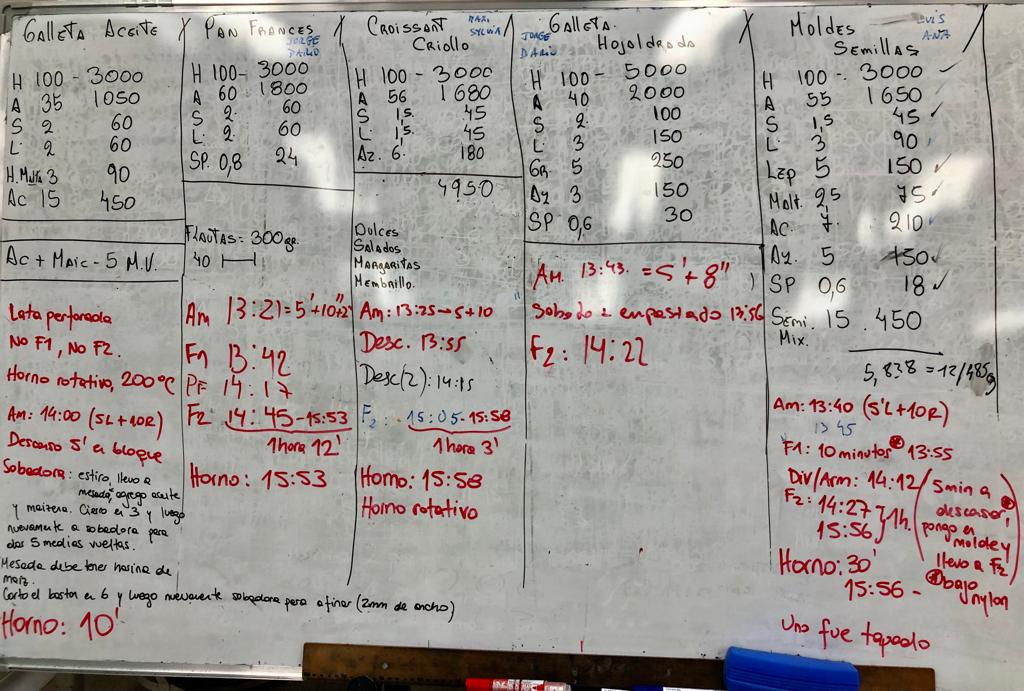 Galleta Aceite
H 100 - 3000
A 35 1050
S 2 60
L 2 60
H. Malta 3 90
Ac 15 450
Ac + Maic - 5 M.V.
Lata perforada
No F1, No F2.
Horno rotativo, 200°C
Am: 14:00 (5L + 10R)
Descanso 5' en bloque
Sobadora: estiro, llevo a
mesada, agrego aceite
y maizena. Cierro en 3 y luego
nuevamente a sobadora para
dar 5 medias vueltas.
Mesada debe tener harina de
maíz.
Corto el baston en 6 y luego nuevamente sobadora para afinar (2mm de ancho)
Horno: 10'
Pan Frances
JORGE
DARIO
H 100- 3000
A 60 1800
S 2 60
L 2 60
SP. 0,8 24
Flautas = 300gr.
40
Am 13:21 = 5'+10"+2'
F1 13:42
PF 14:17
F2 14:45 - 15:53
1 hora 12'
Horno: 15:53
Croissant
Criollo
SYLVIA
H 100 - 3000
A 56 1680
S 1,5 45
L 1,5 45
Az. 6 180
4950
Dulces
Salados
Margaritas
Membrillo.
Am: 13:25 → 5 + 10
Desc. 13:55
Desc(2): 14:15
F2: 15:05 - 15:58
1 hora 3'
Horno: 15:58
Horno rotativo
Galleta
Hojaldrada
JORGE
DARIO
H 100 - 5000
A 40 2000
S 2 100
L 3 150
GR. 5 250
Az 3 150
SP 0,6 30
Am. 13:43. = 5' + 8"
Sobado 2 empastado 13:56
F2: 14:22
Moldes
Semillas
LUIS
ANA
H 100 - 3000 ✓
A 55 1650 ✓
S 1,5 45 ✓
L 3 90
Lep 5 150 ✓
Malt. 2,5 75 ✓
AC. 7 210
Az. 5 150
SP 0,6 18 ✓
Semi. 15 450
Mix.
5,838 = 12/485g
Am: 13:40 (5'L + 10R)
13 45
F1: 10 minutos * 13:55
Div/Arm: 14:12
F2: 14:27
15:56 } 1h.
(5 min a *
descasar,
pongo en
molde y
llevo a F2)
Horno: 30'
15:56 -
* bajo
nylon
Uno fue tapado